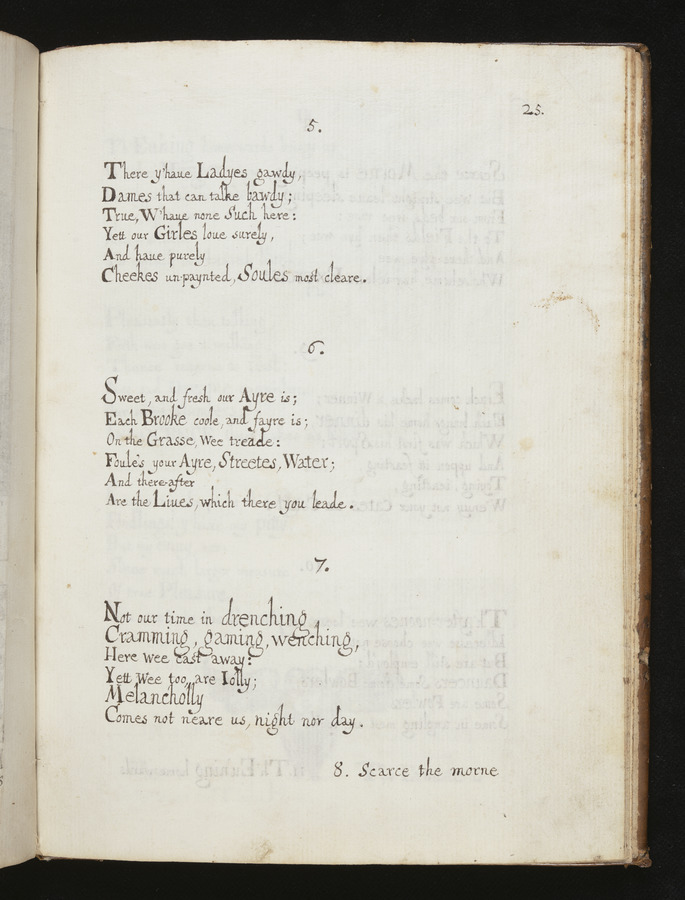 25.
5.
There y'haue Ladyes gawdy,
Dames that can talke bawdy;
True, W'haue none Such here:
Yett our Girles loue surely,
And haue purely
Cheekes un-paynted, Soules most cleare.
6.
Sweet, and fresh our Ayre is;
Each Brooke coole, and fayre is;
On the Grasse, Wee treade:
Foule's your Ayre, Streetes, Water;
And there-after
Are the Liues, which there you leade.
7.
Not our time in drenching
Cramming, gaming, wenching,
Here Wee cast away:
Yett Wee too, are Iolly;
Melancholly
Comes not neare us, night nor day.
8. Scarce the morne